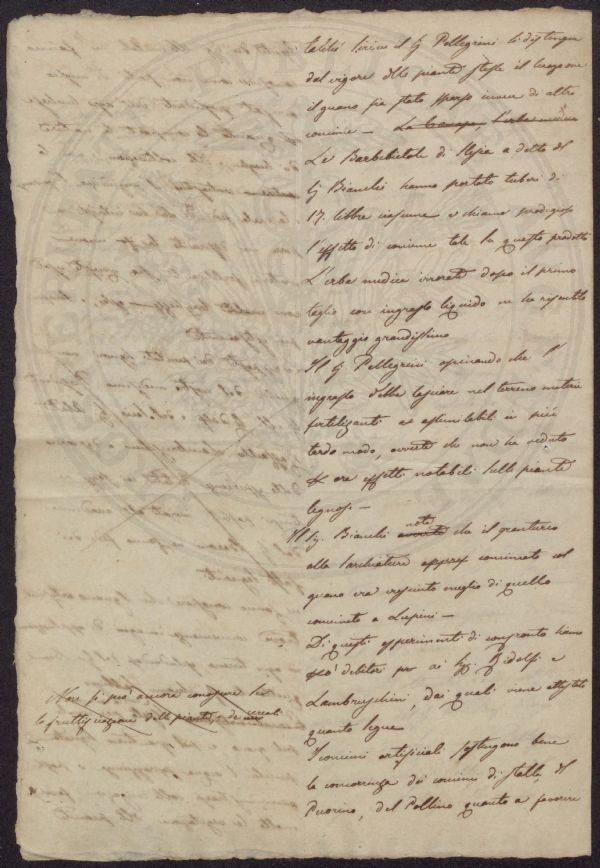 talché scrive il Sg Pellegrini si distingue
dal vigore delle piante stesse il luogo ove
il guano sia stato sparso invece di altro
concime — La Canapa, L'erba medica
Le Barbebietole di Slesia a detta del
Sg Bianchi hanno portato tuberi di
17. libbre ciascuno e chiama prodigioso
l'effetto di concime tale su questo prodotto
L'erba medica irrorata dopo il primo
taglio con ingrasso liquido ne ha risentito
vantaggio grandissimo
Il Sg Pellegrini opinando che l'
ingrasso debba lasciare nel terreno materie
fertilizzanti ed assimilabili in più
tardo modo, avverte che non ha veduto
per ora effetti notabili sulle piante
legnose —
Il Sg. Bianchi notò che il granturco
alla sarchiatura concimato col
guano era cresciuto meglio di quello
concimato a Lupini —
Di questi esperimenti di confronto siamo
debitori pur ai Sgg. Ridolfi e
Lambruschini, dai quali viene attestato
quanto segue
I concimi artificiali sostengono bene
la concorrenza dei concimi di stalla, del
Pecorino, del Pollino quanto a favorire
Non si può ancora conoscere
la fruttificazione delle piante, e dei cereali